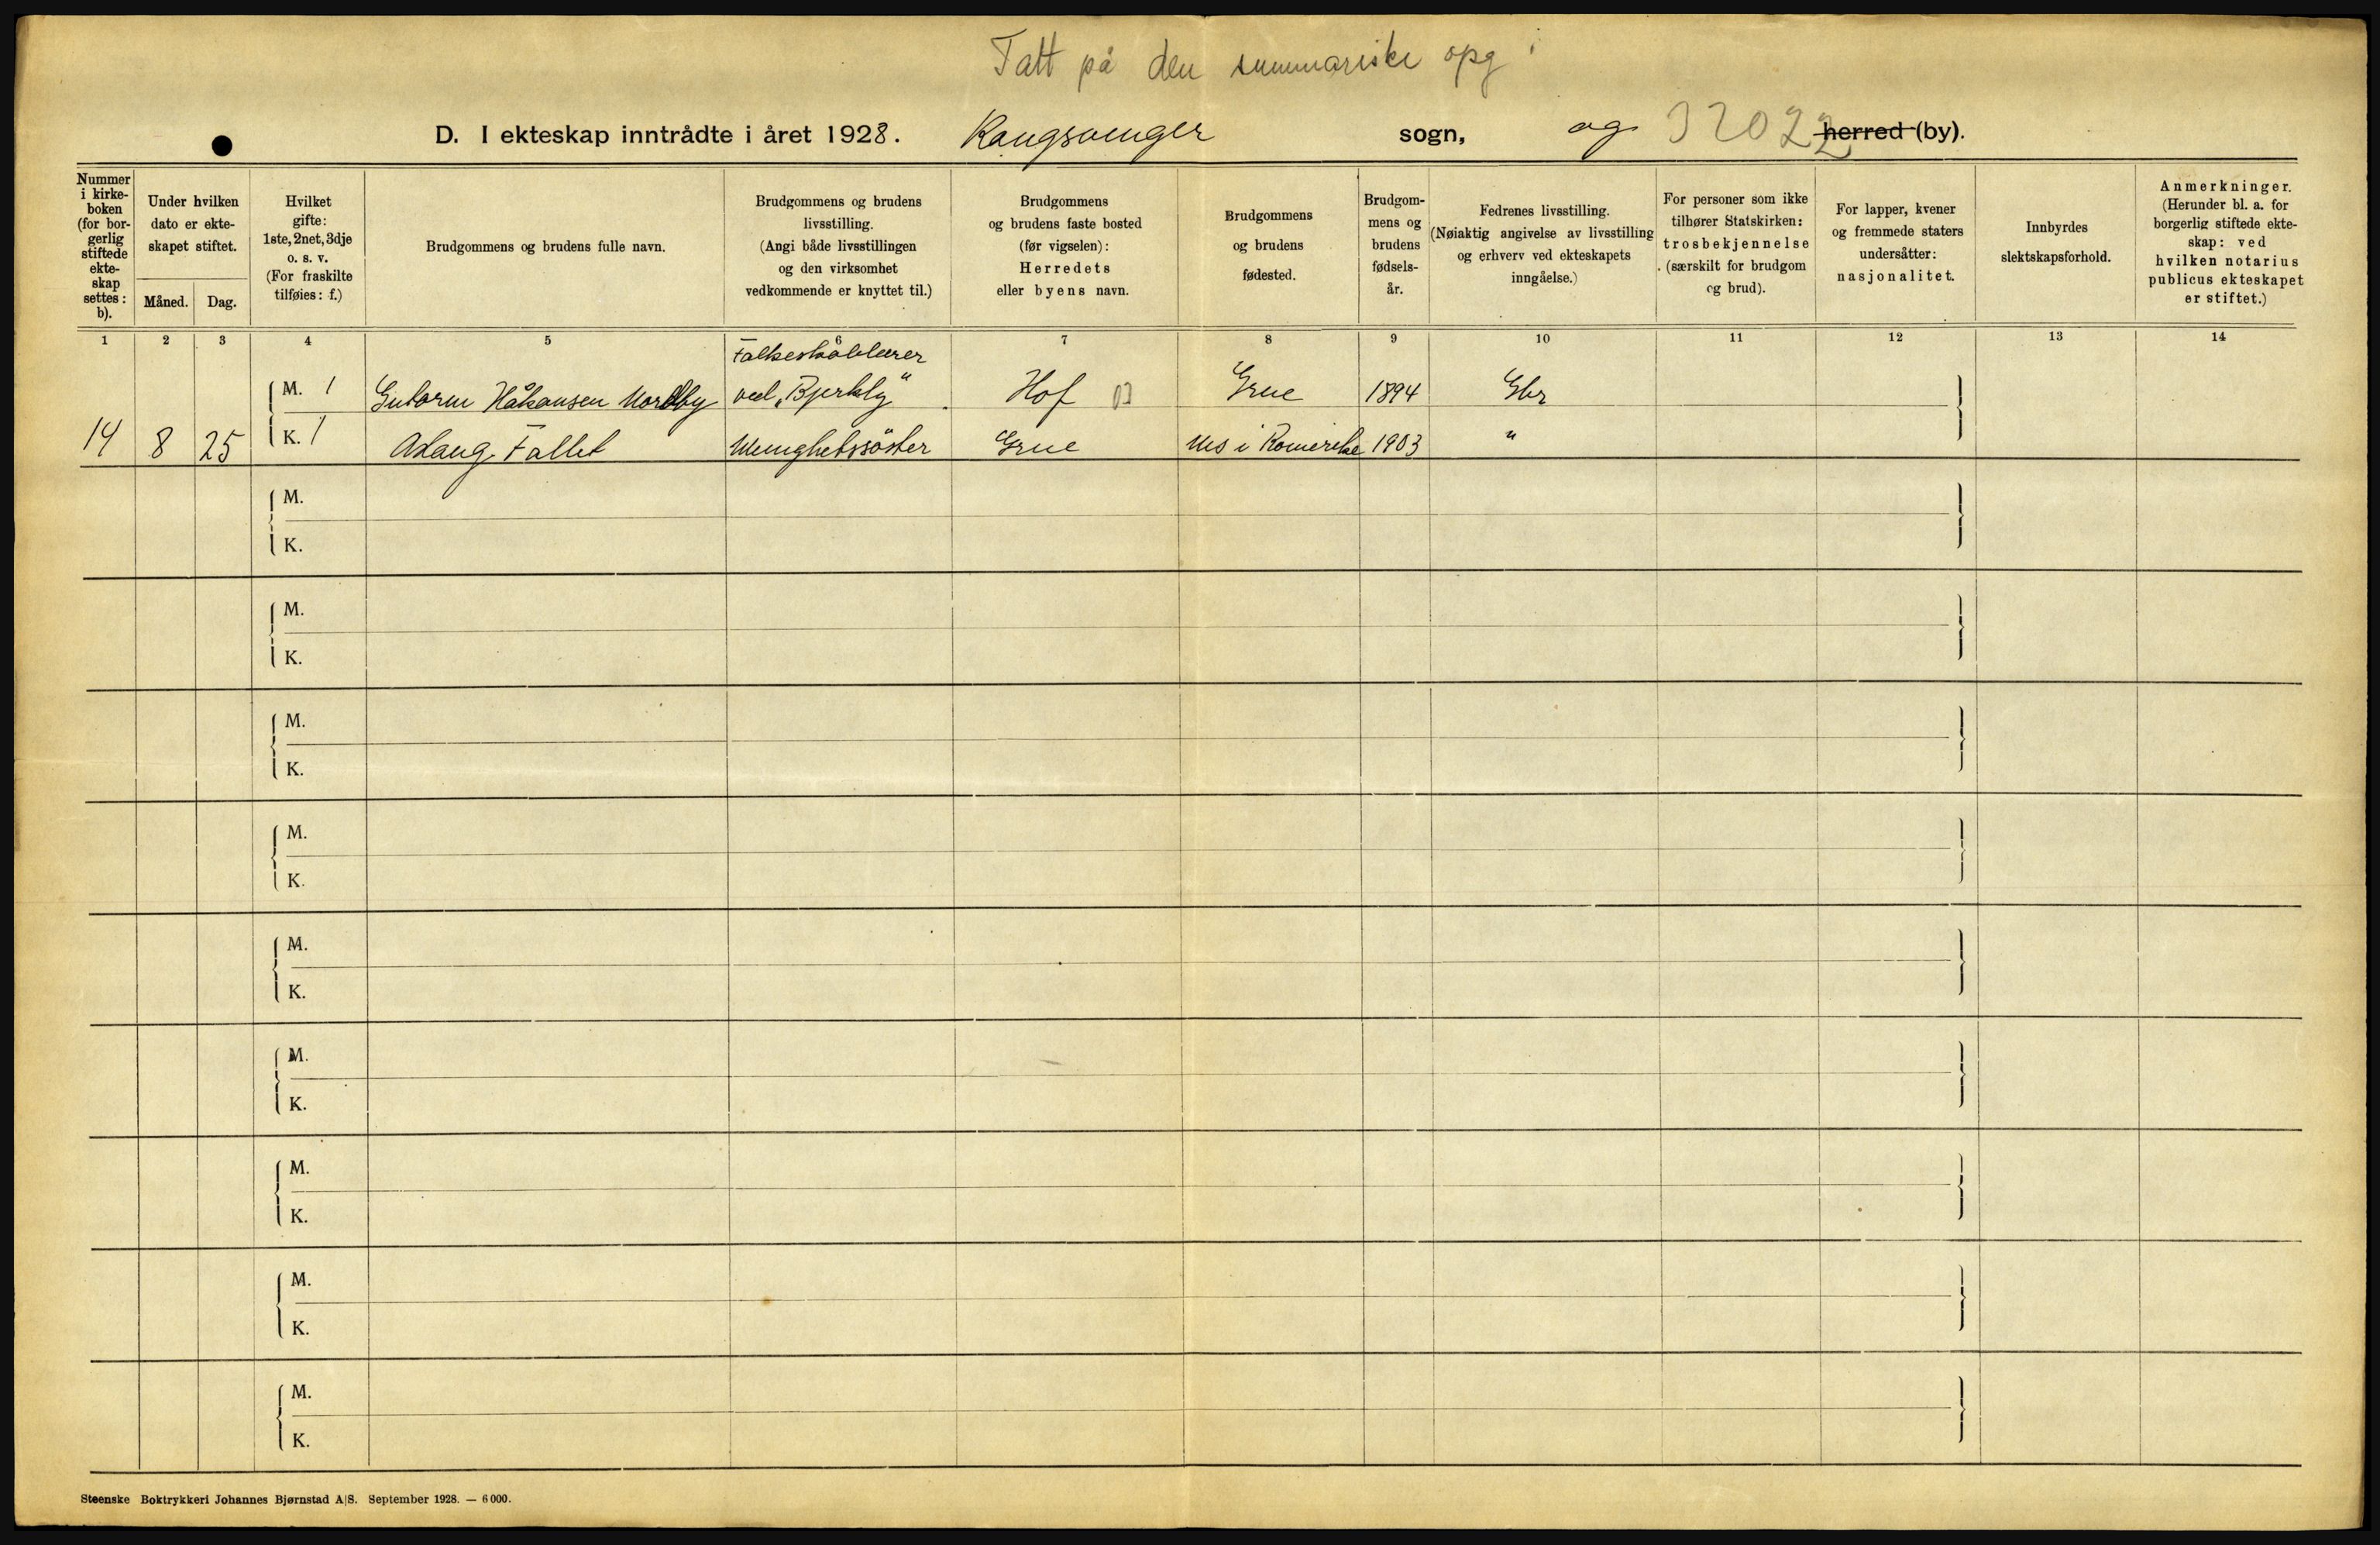 Tatt på den summariske opg
D. I ekteskap inntrådte i året 1928. Kongsvinger sogn, og 32022 herred (by).
Nummer
i kirke-
boken
(for bor-
gerlig
stiftede
ekte-
skap
settes:
b).
Under hvilken
dato er ekte-
skapet stiftet.
Måned. Dag.
Hvilket
gifte:
1ste, 2net, 3dje
o. s. v.
(For fraskilte
tilføies: f.)
Brudgommens og brudens fulle navn.
Brudgommens og brudens
livsstilling.
(Angi både livsstillingen
og den virksomhet
vedkommende er knyttet til.)
Brudgommens
og brudens faste bosted
(før vigselen):
Herredets
eller byens navn.
Brudgommens
og brudens
fødested.
Brudgom-
mens og
brudens
fødsels-
år.
Fedrenes livsstilling.
(Nøiaktig angivelse av livsstilling
og erhverv ved ekteskapets
inngåelse.)
For personer som ikke
tilhører Statskirken:
trosbekjennelse
(særskilt for brudgom
og brud).
For lapper, kvener
og fremmede staters
undersåtter:
nasjonalitet.
Innbyrdes
slektskapsforhold.
Anmerkninger.
(Herunder bl. a. for
borgerlig stiftede ekte-
skap: ved
hvilken notarius
publicus ekteskapet
er stiftet.)
1 2 3 4 5 6 7 8 9 10 11 12 13 14
Folkeskolelærer
M. 1 Gutorm Håkonsen Nordby ved „Bjerkly" Hof Grue 1894 Gbr
14 8 25 K. 1 Aslaug Fallet Menighetssöster Grue Nes i Romerike 1903 "
M.
K.
M.
K.
M.
K.
M.
K.
M.
K.
M.
K.
M.
K.
M.
K.
M.
K.
Steenske Boktrykkeri Johannes Bjørnstad A|S. September 1928. — 6000.